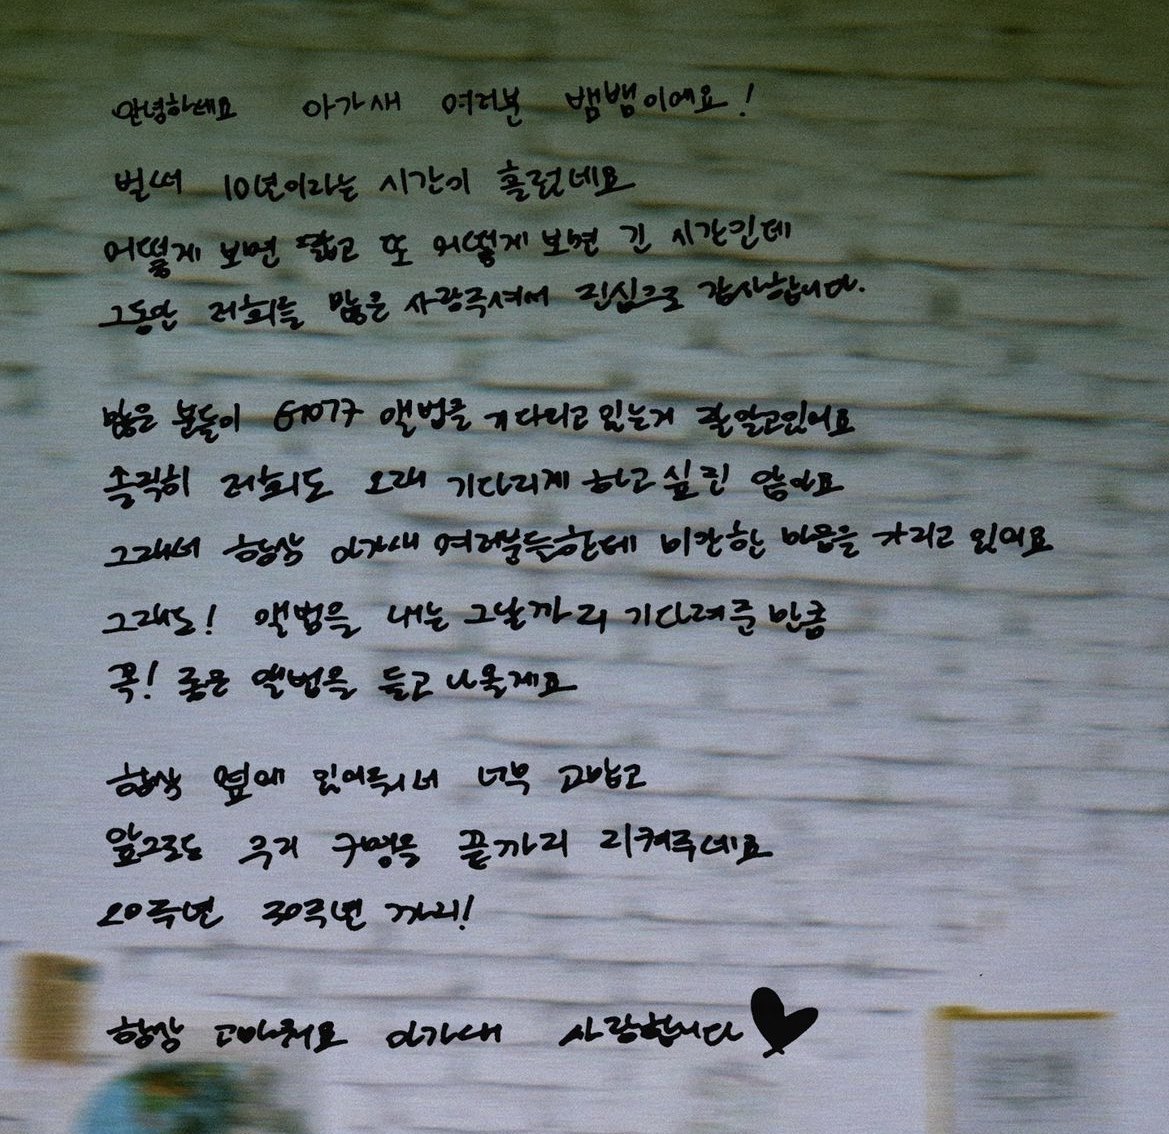 안녕하세요 아가새 여러분 뱀뱀이에요!
벌써 10년이라는 시간이 흘렀네요
어떻게 보면 짧고 또 어떻게 보면 긴 시간인데
그동안 저희를 많은 사랑주셔서 진심으로 감사합니다.
많은 분들이 GOT7 앨범을 기다리고 있는거 잘알고있어요
솔직히 저희도 오래 기다리게 하고 싶진 않아요
그래서 항상 아가새 여러분들한테 미안한 마음을 가지고 있어요
그래도! 앨범을 내는 그날까지 기다려준 만큼
꼭! 좋은 앨범을 들고 나올게요
항상 옆에 있어줘서 너무 고맙고
앞으로도 우리 7명을 끝까지 지켜주세요
20주년 30주년 까지!
항상 고마워요 아가새 사랑합니다